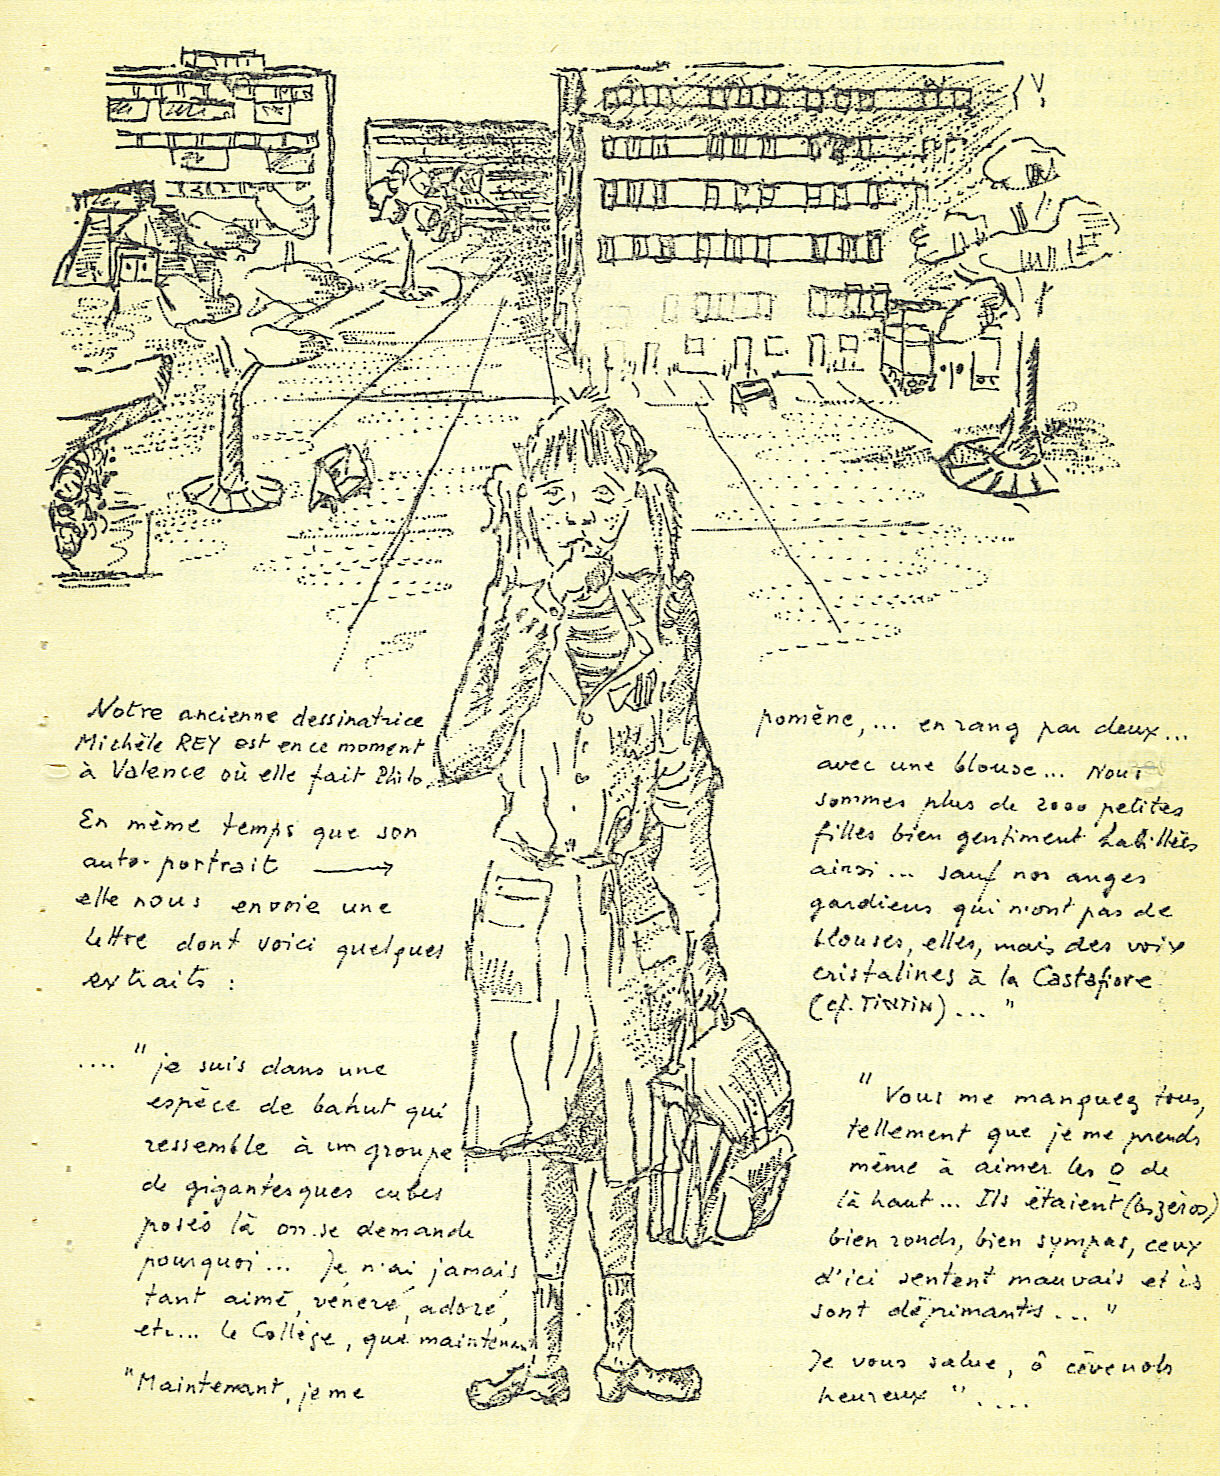 Notre ancienne dessinatrice
Michèle REY est en ce moment
à Valence où elle fait Philo.
En même temps que son
auto-portrait →
elle nous envoie une
lettre dont voici quelques
extraits :
.... " je suis dans une
espèce de bahut qui
ressemble à un groupe
de gigantesques cubes
posés là on se demande
pourquoi... Je n'ai jamais
tant aimé, vénéré, adoré,
etc... le Collège, que maintenant
"Maintenant, je me
pomène,... en rang par deux...
avec une blouse... Nous
sommes plus de 2000 petites
filles bien gentiment habillées
ainsi... sauf nos anges
gardiens qui n'ont pas de
blouses, elles, mais des voix
cristalines à la Castafiore
(cf. TINTIN)... "
" Vous me manquez tous,
tellement que je me prends
même à aimer les 0 de
là haut... Ils étaient (les zéros)
bien ronds, bien sympas, ceux
d'ici sentent mauvais et ils
sont déprimants... "
Je vous salue, ô cévenols
heureux " ....